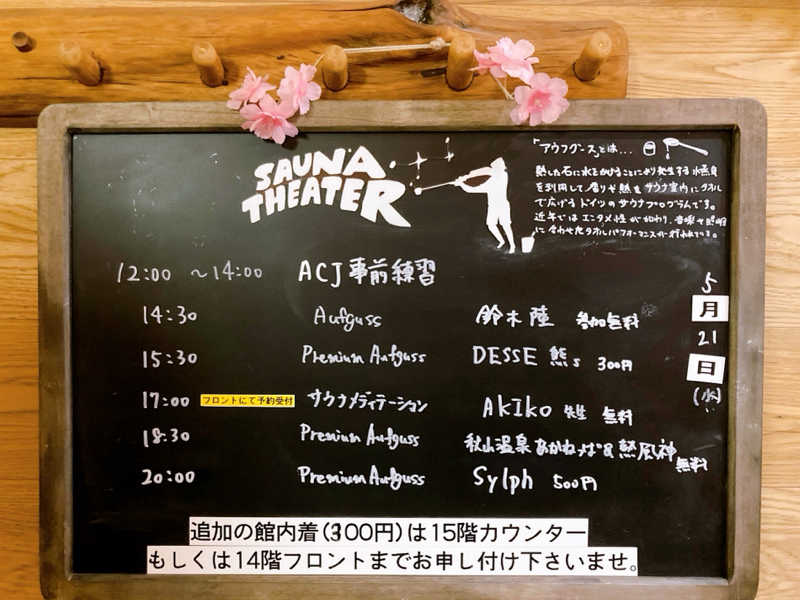 SAUNA
THEATER
「アウフグース」とは...
熱した石に水をかけることにより発生する蒸気
を利用して香りや熱をサウナ室内にタオル
で広げるドイツのサウナプログラムです。
近年ではエンタメ性が加わり、音楽や照明
に合わせたタオルパフォーマンスが行われている。
5
月
21
日
(水)
12:00 ～14:00 ACJ事前練習
14:30 Aufguss 鈴木陸 参加無料
15:30 Premium Aufguss DESSE 熊s 300円
17:00 フロントにて予約受付 サウナメディテーション AKIKO 先生 無料
18:30 Premium Aufguss 秋山温泉あかねっぱ& 熱風神 無料
20:00 Premium Aufguss Sylph 500円
追加の館内着(300円)は15階カウンター
もしくは14階フロントまでお申し付け下さいませ。